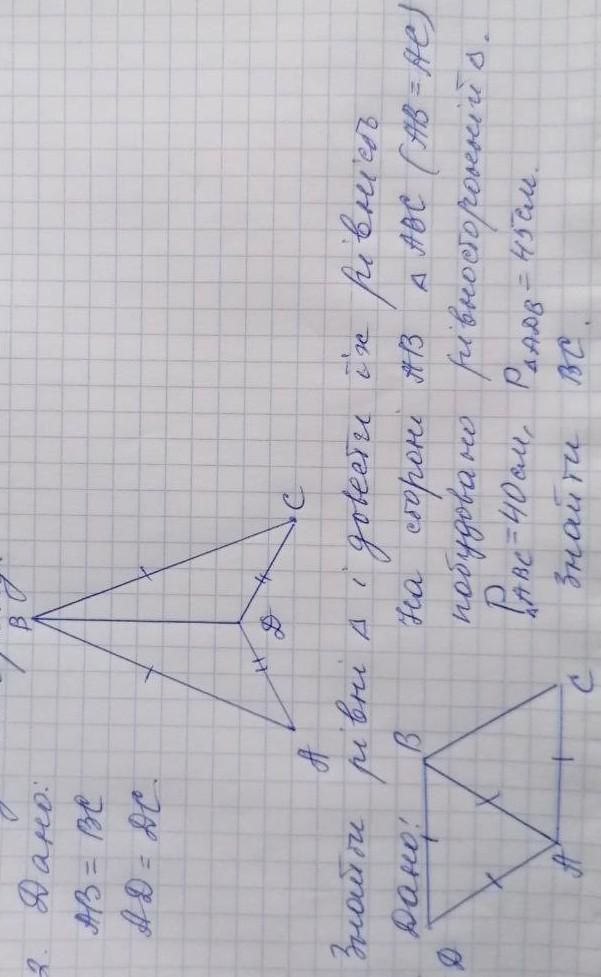 2. Дано:
AB = BC
AD = DC
B
A
D
C
Знайти рівні Δ і довести їх рівність
Дано:
D
B
A
C
На стороні AB Δ ABC (AB = AC)
побудовано рівносторонній Δ.
PΔABC = 40 см, PΔADB = 45 см.
Знайти BC.